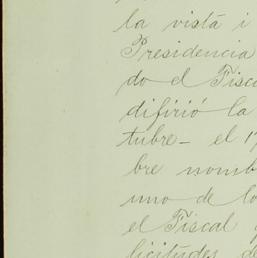 la vista i
Presidencia
do el Fisca
difirió la
tubre - el 17
bre nomb
uno de lo
el Fiscal
licitudes de